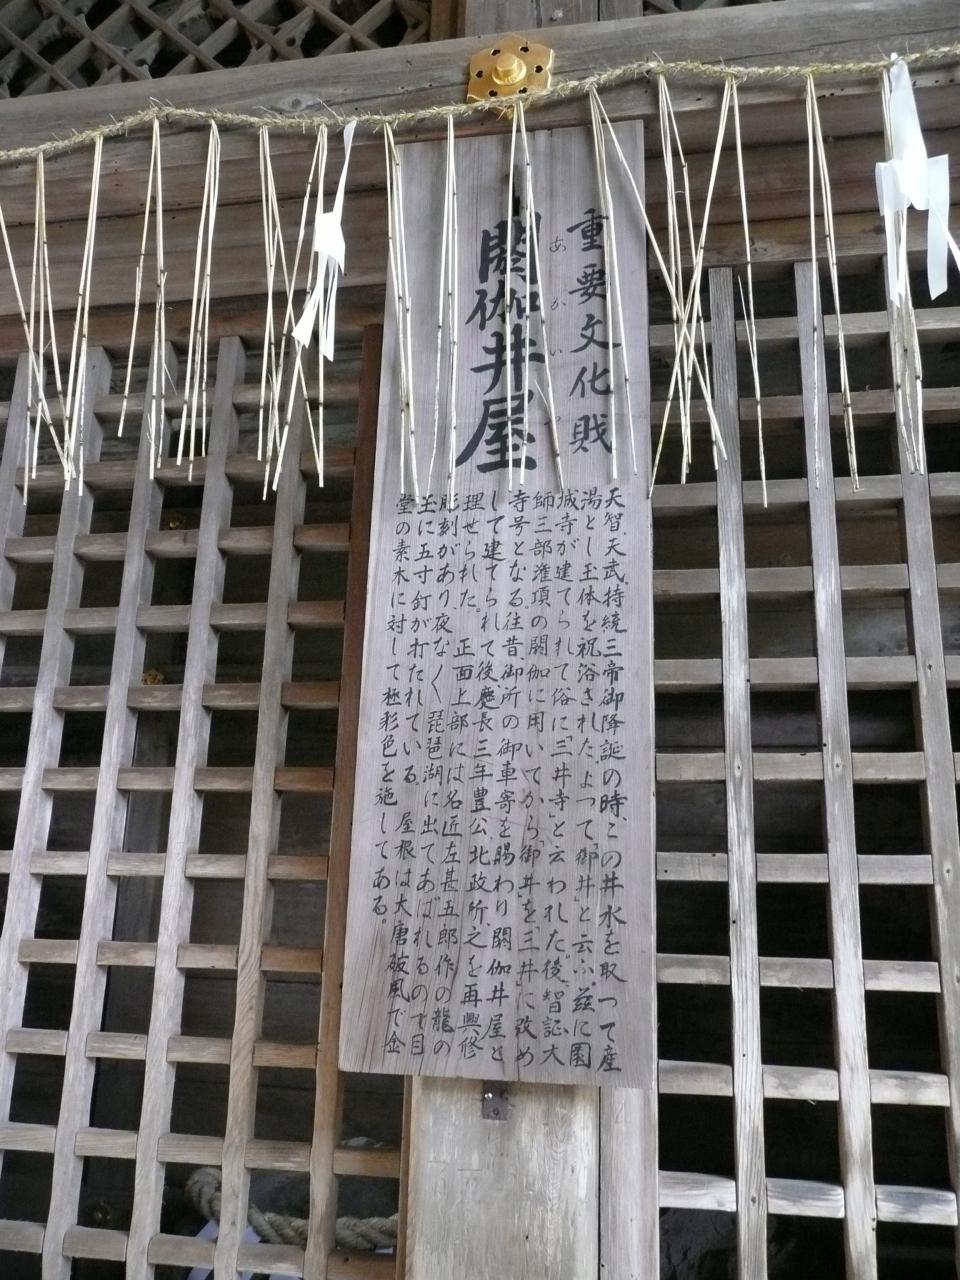 重要文化財
あかいや
閼伽井屋
天智、天武、持統三帝御降誕の時、この井水を取つて産
湯とし玉体を祝浴された、よつて「御井」と云ふ。茲に園
城寺が建てられて俗に「三井寺」と云われた。後、智証大
師三部潅頂の閼伽に用いてから「御井」を「三井」に改め
寺号となる。往昔、御所の御車寄を賜わり閼伽井屋と
して建てられて後慶長三年豊公、北政所、之を再興修
理せられた。正面上部には名匠左甚五郎作の龍の
彫刻があり夜なく〱琵琶湖に出てあばれるので目
玉に五寸釘が打たれている。屋根は大唐破風で金
堂の素木に対して極彩色を施してある。